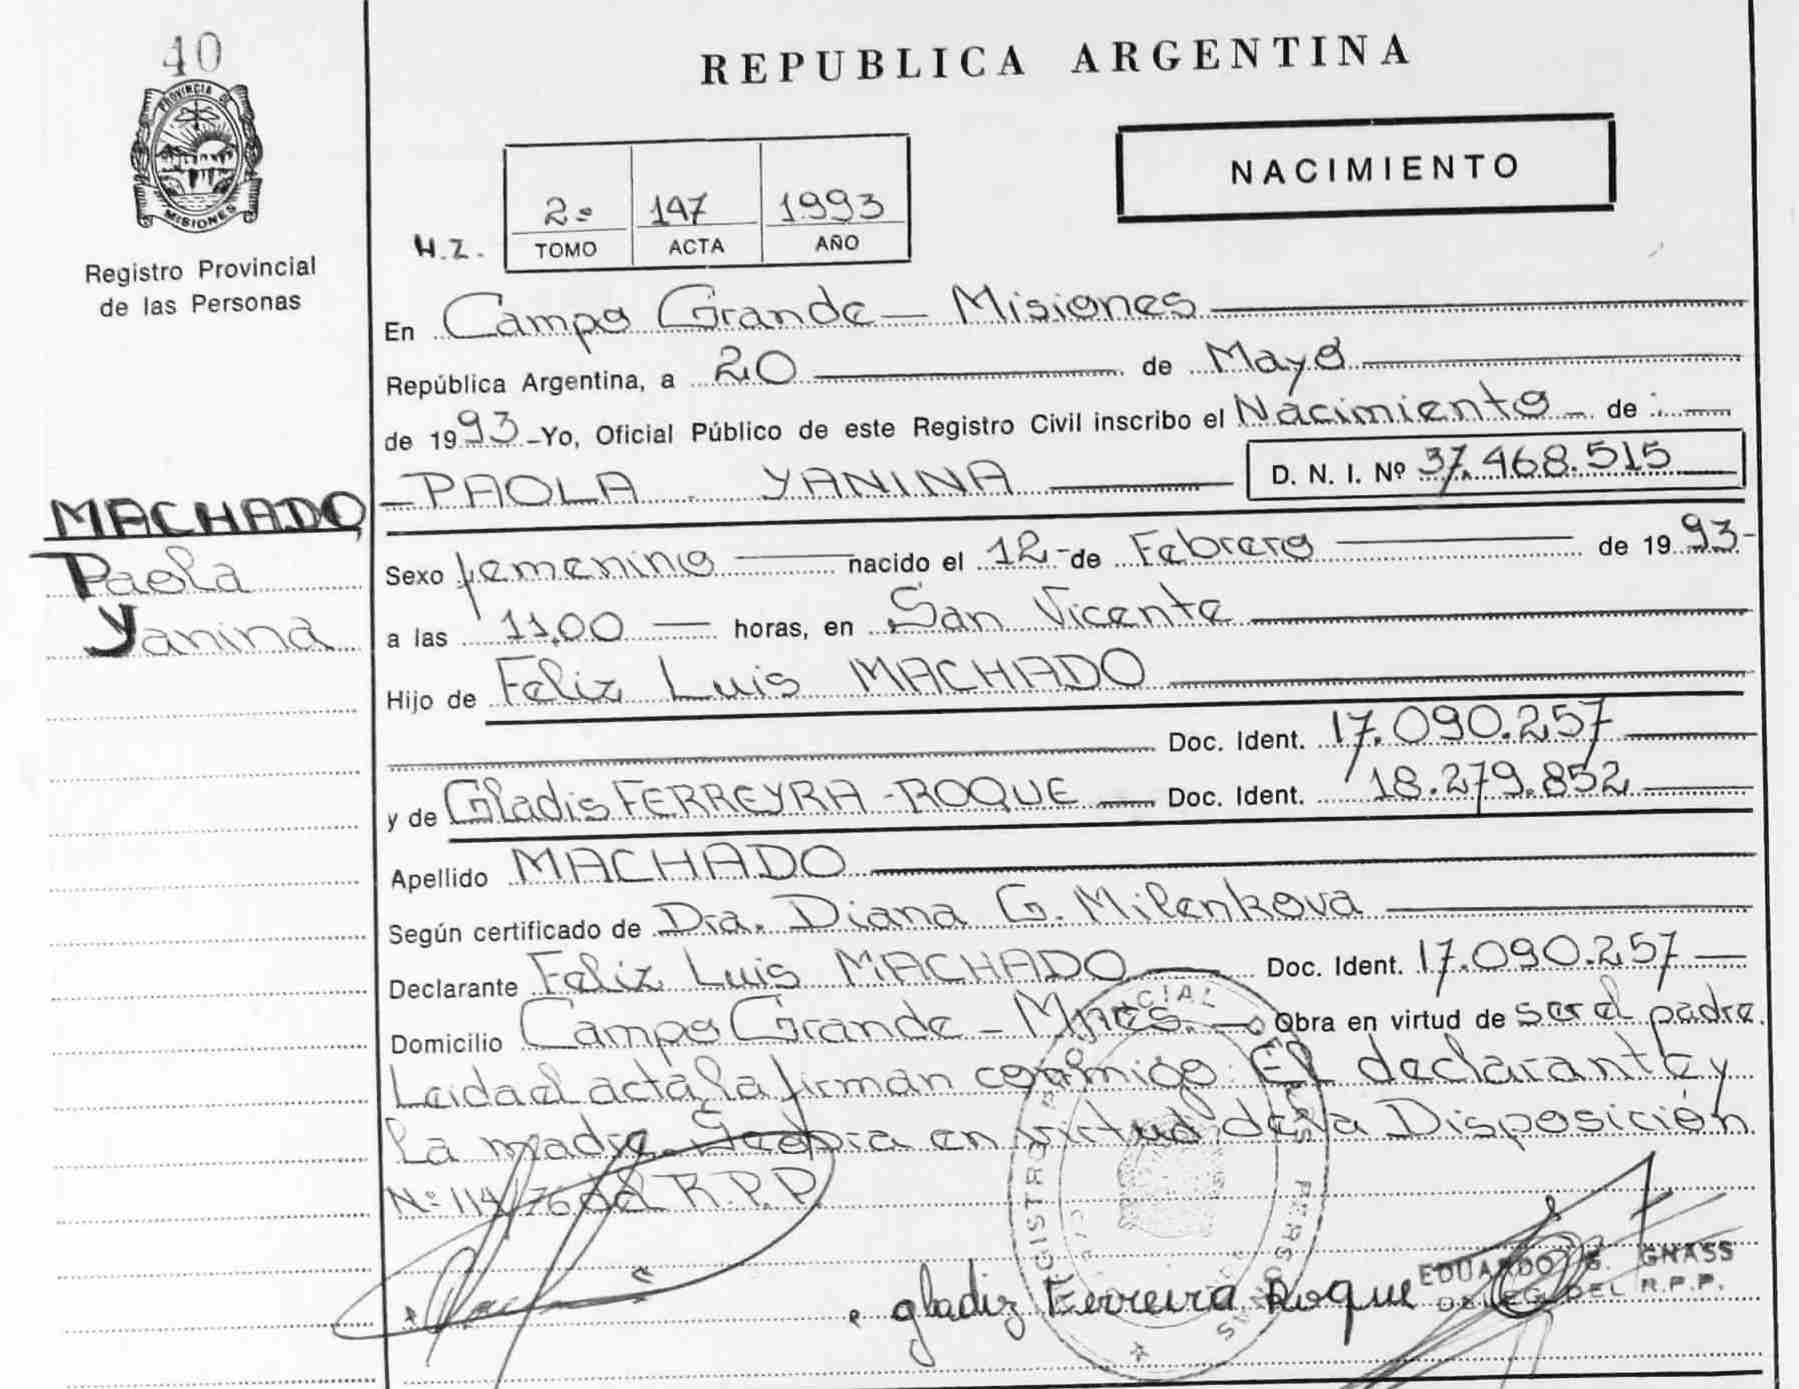 40
PROVINCIA DE
MISIONES
Registro Provincial
de las Personas
REPUBLICA ARGENTINA
NACIMIENTO
H.Z.
2º 147 1993
TOMO ACTA AÑO
En Campo Grande - Misiones
República Argentina, a 20 de Mayo
de 1993 - Yo, Oficial Público de este Registro Civil inscribo el Nacimiento - de :
- PAOLA YANINA
D. N. I. Nº 37.468.515
MACHADO
Paola
Yanina
Sexo femenino nacido el 12 - de Febrero de 1993 -
a las 11,00 horas, en San Vicente
Hijo de Feliz Luis MACHADO
Doc. Ident. 17.090.257
y de Gladis FERREYRA - ROQUE Doc. Ident. 18.279.852
Apellido MACHADO
Según certificado de Dra. Diana G. Milenkova
Declarante Feliz Luis MACHADO Doc. Ident. 17.090.257
Domicilio Campo Grande - Mnes. Obra en virtud de ser el padre.
Leida el acta, la firman conmigo: El declarante y
la madre. Se obra en virtud de la Disposición
Nº 114/76 del R.P.P.
REGISTRO PROVINCIAL DE LAS PERSONAS
gladiz Ferreira Roque
EDUARDO G. GNASS
DELEG. DEL R.P.P.